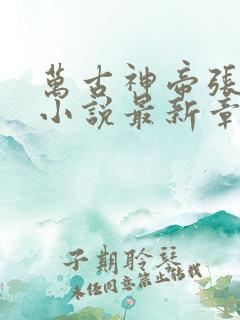 萬古神帝張
小說最新章
子期聆琴
未經同意禁止轉載